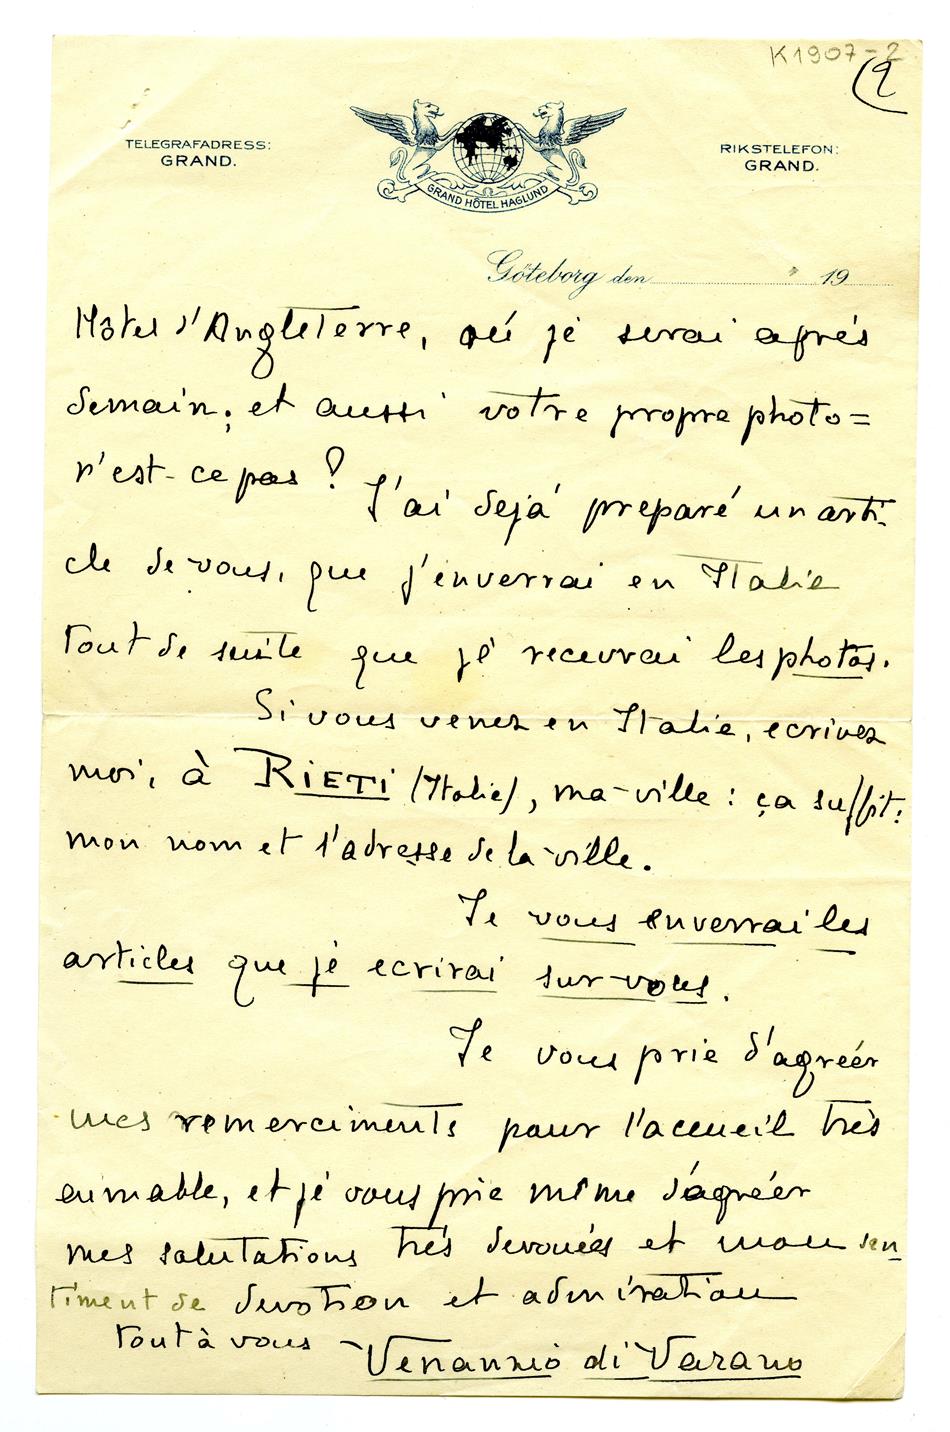 K1907-2
(2
TELEGRAFADRESS:
GRAND.
GRAND HÔTEL HAGLUND
RIKSTELEFON:
GRAND.
Göteborg den 19
Hôtel d'Angleterre, où je serai aprés
demain; et aussi votre propre photo=
n'est-ce pas?
J'ai dejà preparé un arti-
cle de vous, que j'enverrai en Italie
tout de suite que je recevrai les photos.
Si vous venez en Italie, ecrivez
moi, à RIETI (Italie), ma ville: ça suffit:
mon nom et l'adresse de la ville.
Je vous enverrai les
articles que je ecrirai sur vous.
Je vous prie d'agréér
mes remerciments pour l'accueil très
aimable, et je vous prie même d'agréér
mes salutations trés devouées et mon sen
timent de devotion et admiration
tout à vous Venannio di Varano